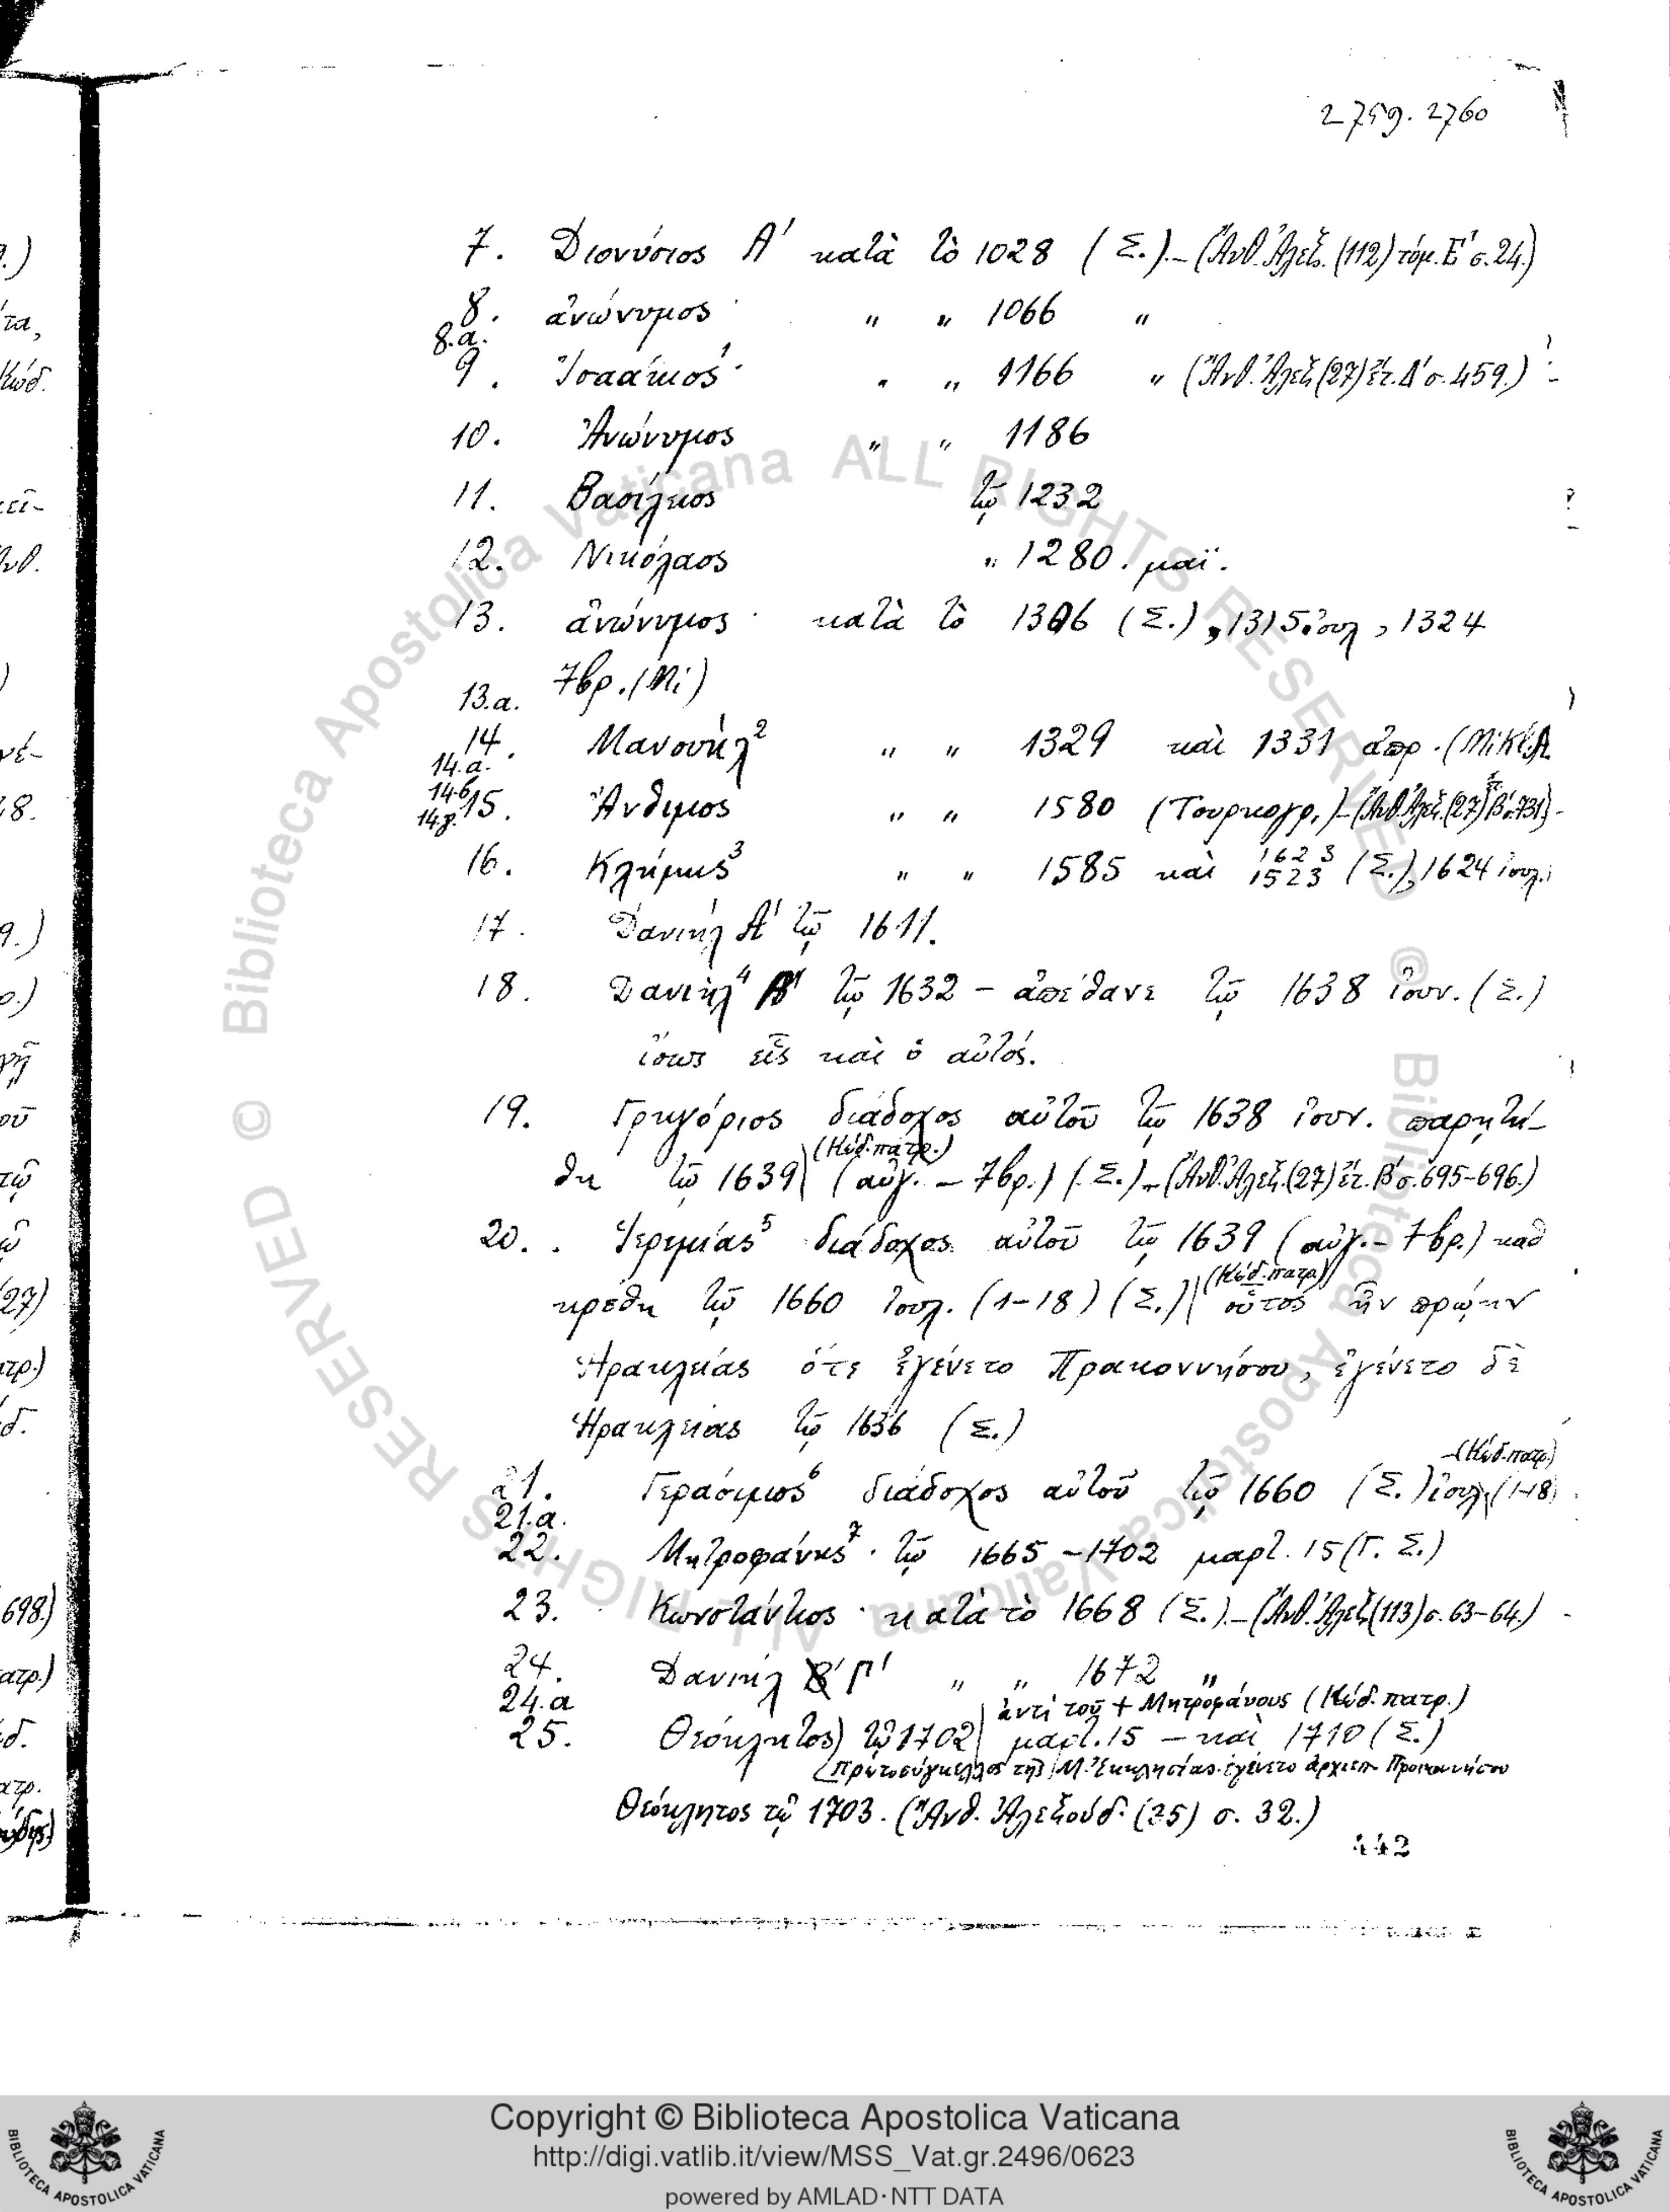 2759. 2760
7. Διονύσιος Α' κατὰ τὸ 1028 (Σ.) – (Ἀνθ. Ἀλεξ. (112) τόμ. Ε' σ. 24.)
8. ἀνώνυμος · " " 1066 "
8.α.
9. Ἰσαάκιος¹ · " " 1166 " (Ἀνθ. Ἀλεξ. (27) ἔτ. Δ' σ. 459.)
10. Ἀνώνυμος " " 1186
11. Βασίλειος τῷ 1232
12. Νικόλαος " 1280. μαΐ.
13. ἀνώνυμος · κατὰ τὸ 1306 (Σ.), 1315 ἰουλ, 1324
7βρ. (Μi)
13.α.
14. Μανουήλ² " " 1329 καὶ 1331 ἀπρ. (Μι
14.α.
14.β.
15. Ἄνθιμος " " 1580 (Τουρκογρ.) – (Ἀνθ. Ἀλεξ. (27) ἔτ. Β' σ. 731)
14.γ.
16. Κλήμης³ " " 1585 καὶ 1523 (Σ.), 1624 ἰουλ.
1623
17. Δανιήλ Α' τῷ 1611.
18. Δανιὴλ⁴ Β' τῷ 1632 – ἀπέθανε τῷ 1638 ἰουν. (Σ.)
ἴσως εἷς καὶ ὁ αὐτός.
19. Γρηγόριος διάδοχος αὐτοῦ τῷ 1638 ἰουν. παρῃτή-
(Κώδ. πατρ.)
θη τῷ 1639 (αὐγ. – 7βρ.) (Σ.) – (Ἀνθ. Ἀλεξ. (27) ἔτ. Β' σ. 695-696.)
20. Ἱερεμίας⁵ διάδοχος αὐτοῦ τῷ 1639 (αὐγ. – 7βρ.) καθ
(Κώδ. πατρ.)
ῃρέθη τῷ 1660 ἰουλ. (1-18) (Σ.) οὗτος ἦν πρώην
Ἡρακλείας ὅτε ἐγένετο Πρακοννήσου, ἐγένετο δὲ
Ἡρακλείας τῷ 1636 (Σ.)
– (Κώδ. πατρ.)
21. Γεράσιμος⁶ διάδοχος αὐτοῦ τῷ 1660 (Σ.) ἰουλ (1-18)
21.α.
22. Μητροφάνης⁷ · τῷ 1665 – 1702 μαρτ. 15 (Γ. Σ.)
23. Κωνστάντιος · κατὰ τὸ 1668 (Σ.) – (Ἀνθ. Ἀλεξ. (113) σ. 63-64.)
24. Δανιήλ Γ' " " 1672 "
24.α ἀντὶ τοῦ + Μητροφάνους (Κώδ. πατρ.)
25. Θεόκλητος) τῷ 1702 μαρτ. 15 – καὶ 1710 (Σ.)
(Πρωτοσύγκελλος τῆς Μ. Ἐκκλησίας ἐγένετο ἀρχιεπ. Προικοννήσου
Θεόκλητος τῷ 1703. (Ἀνθ. Ἀλεξούδ. (35) σ. 32.)
442
© Biblioteca Apostolica Vaticana ALL RIGHTS RESERVED
© Biblioteca Apostolica Vaticana ALL RIGHTS RESERVED
Copyright © Biblioteca Apostolica Vaticana
http://digi.vatlib.it/view/MSS_Vat.gr.2496/0623
powered by AMLAD·NTT DATA
BIBLIOTECA APOSTOLICA VATICANA
BIBLIOTECA APOSTOLICA VATICANA